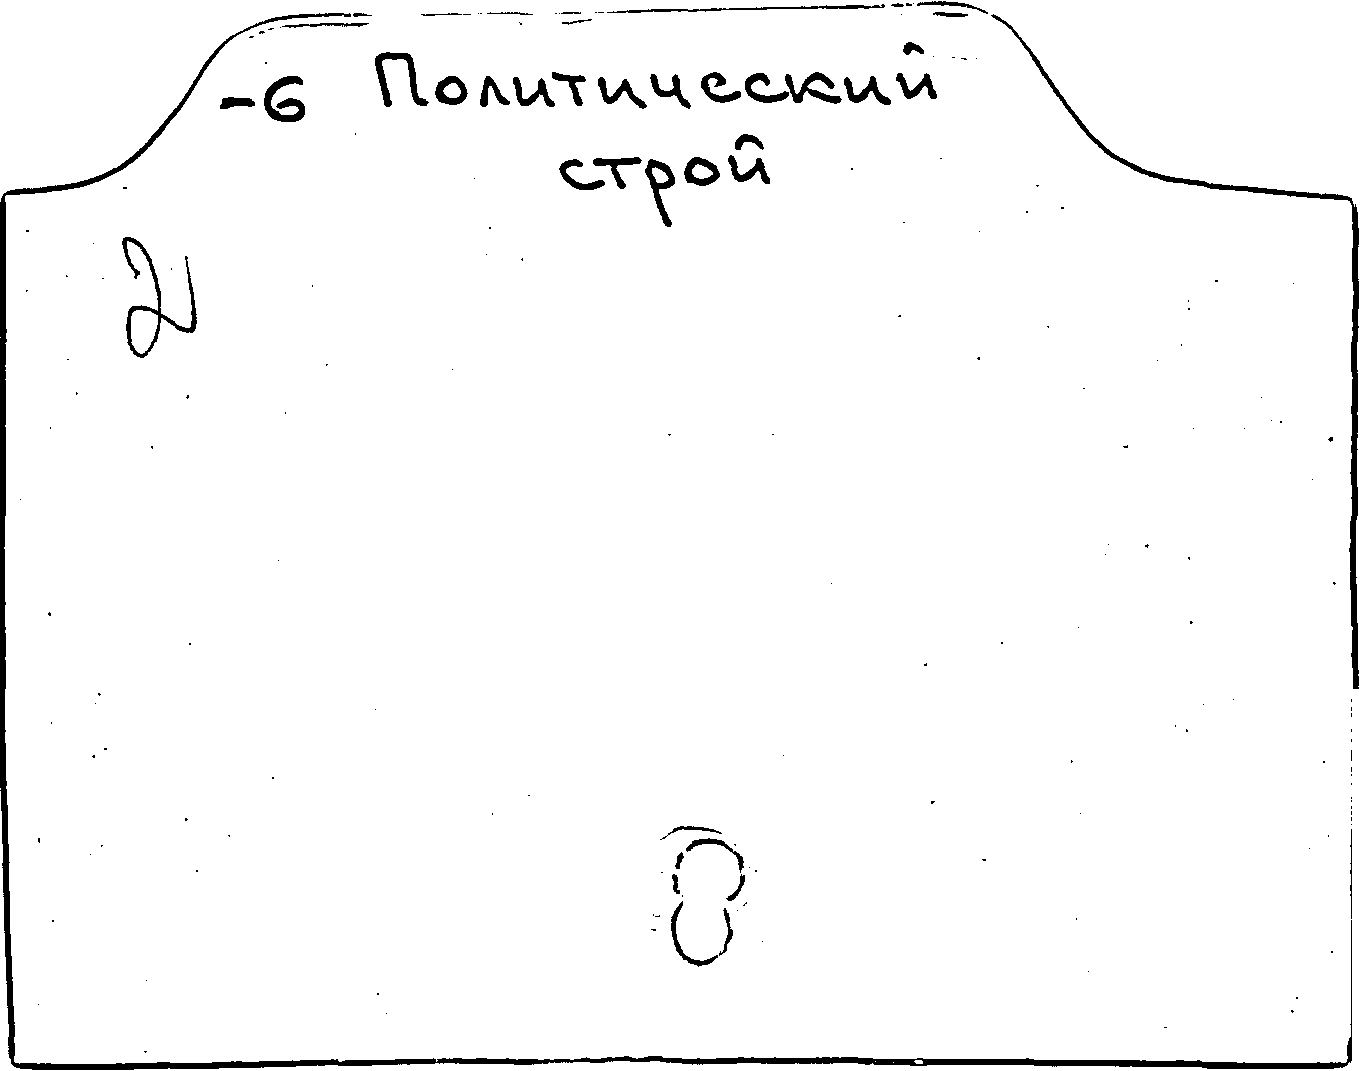 -6 Политический
строй